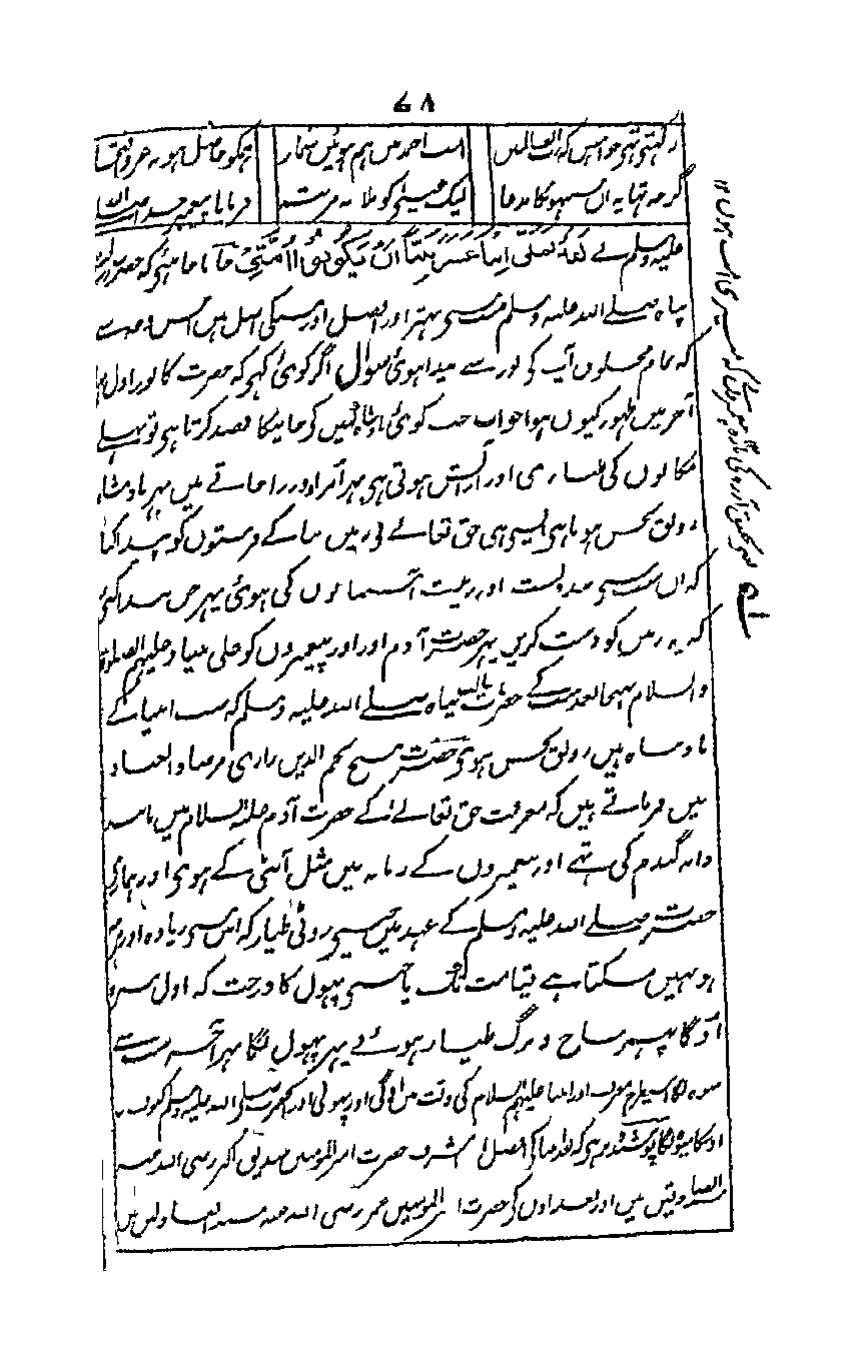 ۷۸
رکھتی تھی خواہش کہ رب العالمین امت احمد میں ہم ہوئیں شمار
گرچہ تھا یہ ان سبھوں کا مدعا لیک عیسیٰ کو ملا یہ مرتبہ فرمایا پیغمبر خدا صلی اللہ
علیہ وسلم نے لَقَدْ تَمَنّٰی اِثْنَا عَشَرَ نَبِیًّا اَنْ یَکُوْنُوْا اُمَّتِیْ جاننا چاہئے کہ حضرت رسالت
پناہ صلے اللہ علیہ وسلم سب سے بہتر اور افضل اور سب کی اصل ہیں اس وجہ سے
کہ تمام مخلوق آپ کی نور سے پیدا ہوئی سوال اگر کوئی کہے کہ حضرت کا نور اول
آخر میں ظہور کیوں ہوا جواب جب کوئی بادشاہ کہیں کو جانیکا قصد کرتا ہی تو پہلے
مکانوں کی طیاری اور آرایش ہوتی ہی پھر امرا و وزرا جاتے ہیں پھر بادشاہ
رونق بخش ہوتا ہی ایسی ہی حق تعالے نے زمیں بنا کے فرشتوں کو پیدا کیا
کہ ان سے بندوبست اور زینت آسمانوں کی ہوئی پھر جن پیدا کئی
کہ یہ زمیں کو درست کریں پھر حضرت آدم اور اور پیغمبروں کو علی نبینا و علیہم الصلوۃ
والسلام بھیجا بعد سب کے حضرت رسالت پناہ صلے اللہ علیہ وسلم کہ سب انبیا کے
بادشاہ ہیں رونق بخش ہوی حضرت شیخ نجم الدین رازی مرصاد العباد
میں فرماتے ہیں کہ معرفت حق تعالے کے حضرت آدم علیہ السلام میں مانند
دانہ گندم کی تھے اور پیغمبروں کے زمانہ میں مثل آٹی کے ہوی اور ہماری
حضرت صلے اللہ علیہ وسلم کے عہد میں جیسی روٹی طیار کہ اس سے زیادہ اور
ہو نہیں سکتا ہے قیامت تک یا جیسی پھول کا درخت کہ اول سبزہ
اوگا پھر شاخ و برگ طیار ہوئے پھر پھول لگا پھر آخر سب سے
میوہ لگا اسیطرح معرفت اور انبیا علیہم السلام کی وقت میں اوگی اور پھولی اور حضرت صلی اللہ علیہ وسلم کو
اوسکا میوہ لگا پوشیدہ نرہی کہ افضل اشرف حضرت امیر المومنین صدیق اکبر رضی اللہ عنہ
ہیں اور بعد اون کے حضرت امیر المومنین عمر رضی اللہ عنہ
لہ تحقیق آرزو کی بارہ پیغمبروں نے کہ میری امت ہوں ۱۲